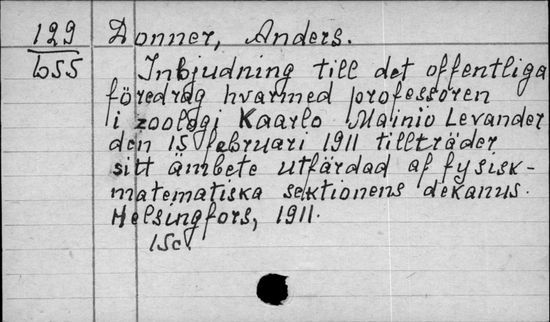 129 Donner, Anders.
b55 Inbjudning till det offentliga
föredrag hvarmed professoren
i zoologi Kaarlo Mainio Levander
den 15 februari 1911 tillträder
sitt ämbete utfärdad af fysisk-
matematiska sektionens dekanus.
Helsingfors, 1911.
15c.